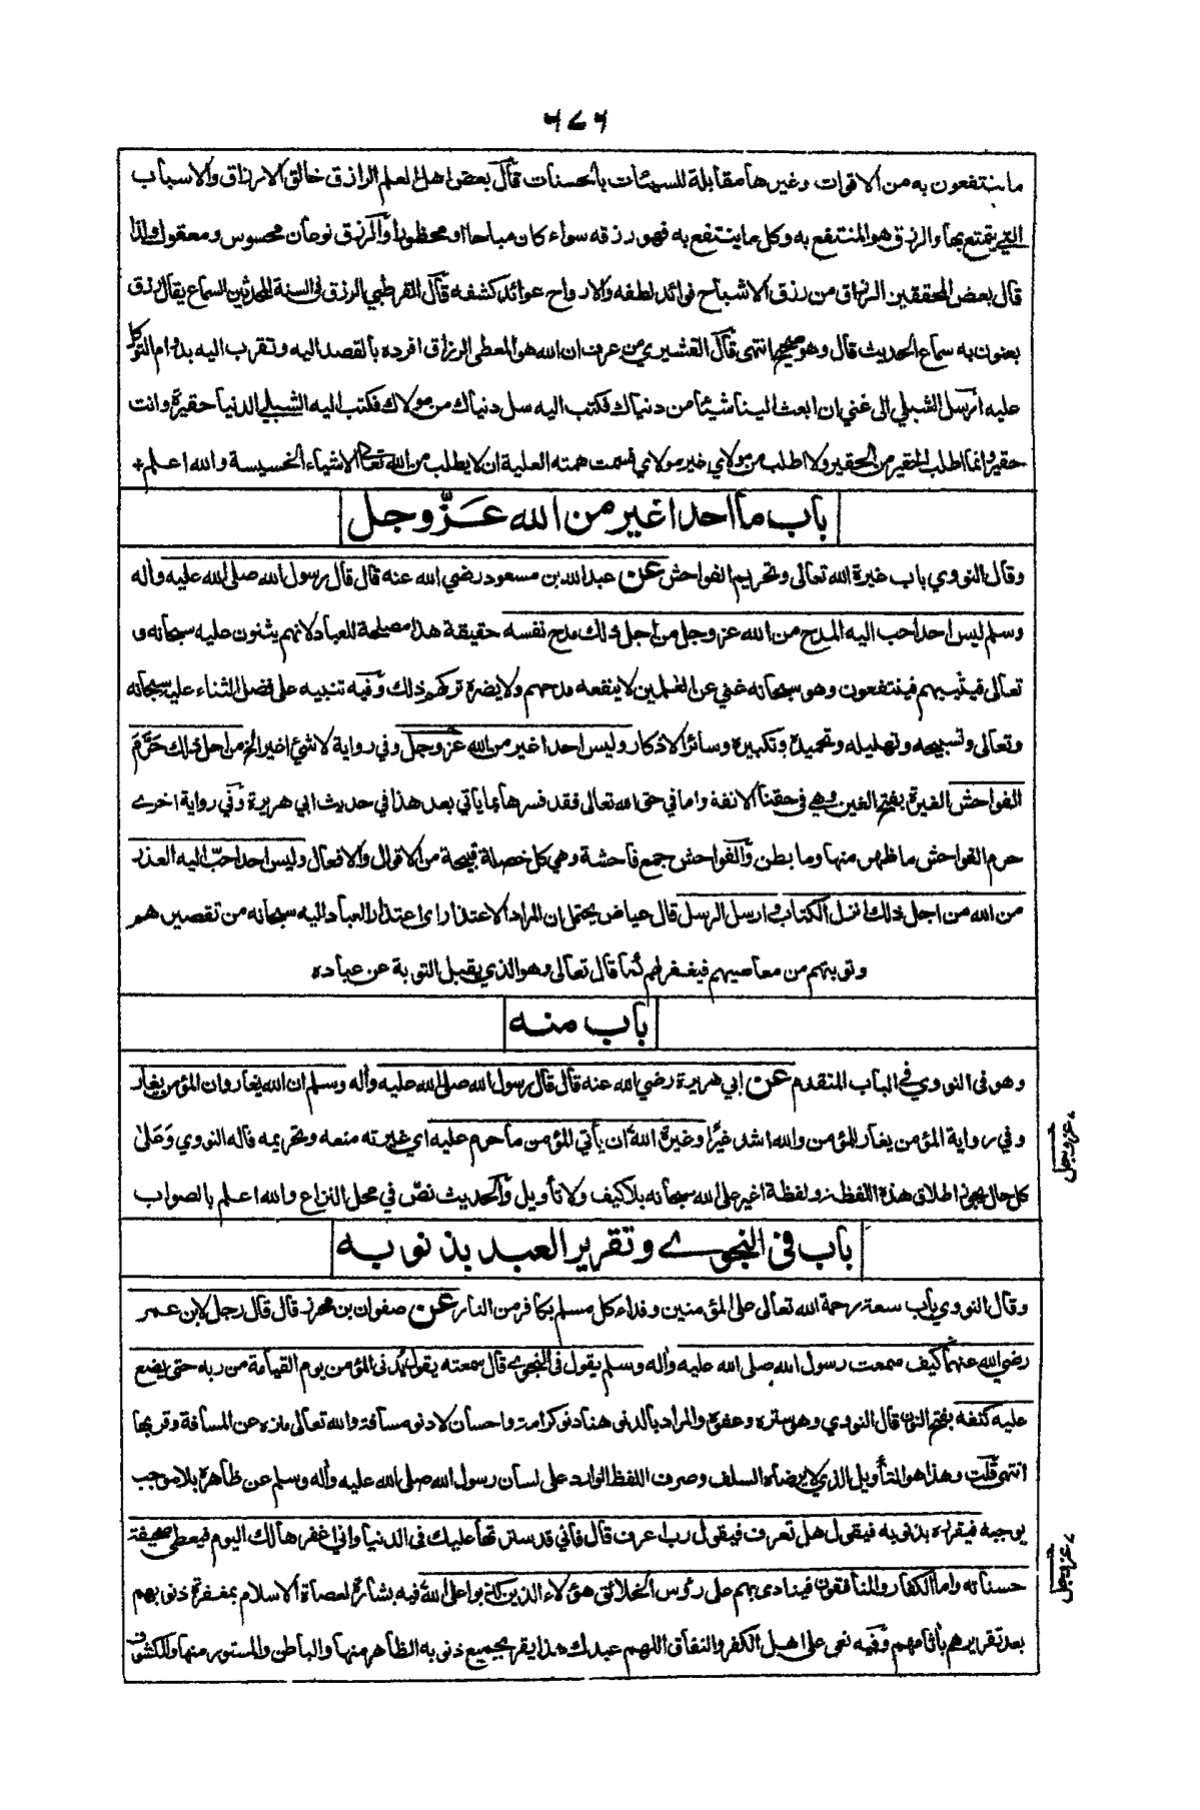 ٦٧٦
ما ينتفعون به من الاقوات وغيرها مقابلة للسيئات بالحسنات قال بعض اهل العلم الرازق خالق الارزاق والاسباب
التي يتمتع بها والرزق هو المنتفع به وكل ما ينتفع به فهو رزقه سواء كان مباحا او محظورا والرزق نوعان محسوس ومعقول ولذا
قال بعض المحققين الرزاق من رزق الاشباح فوائد لطفه والارواح عوائد كشفه قال القرطبي الرزق في السنة المحدثين السماع يقال رزق
يعنون به سماع الحديث قال وهو صحيح انتهى قال القشيري من عرف ان الله هو المعطي الرزاق افرده بالقصد اليه وتقرب اليه بدوام التوكل
عليه ارسل الشبلي الى غني ان ابعث الينا شيئا من دنياك فكتب اليه سل دنياك من مولاك فكتب اليه الشبلي الدنيا حقيرة وانت
حقير وانما اطلب الحقير من الحقير ولا اطلب من مولاي غير مولاي فسمت همته العلية ان لا يطلب من الله تعالى الاشياء الخسيسة والله اعلم +
باب ما احد اغير من الله عَزَّ وجل
وقال النووي باب غيرة الله تعالى وتحريم الفواحش عن عبد الله بن مسعود رضي الله عنه قال قال رسول الله صلى الله عليه وأله
وسلم ليس احد احب اليه المدح من الله عز وجل من اجل ذلك مدح نفسه حقيقة هذا مصلحة للعباد لانهم يثنون عليه سبحانه و
تعالى فيثيبهم فينتفعون وهو سبحانه غني عن العلمين لا ينفعه مدحهم ولا يضره تركهم ذلك وفيه تنبيه على فضل الثناء عليه سبحانه
وتعالى وتسبيحه وتهليله وتحميده وتكبيره وسائر الاذكار وليس احد اغير من الله عز وجل وفي رواية لا شئ اغير الخ من اجل ذلك حَرَّمَ
الفواحش الغيرة بفتح الغين وهي في حقنا الانفة واما في حق الله تعالى فقد فسرها بما ياتي بعد هذا في حديث ابي هريرة وفي رواية اخرى
حرم الفواحش ما ظهر منها وما بطن والفواحش جمع فاحشة وهي كل خصلة قبيحة من الاقوال والافعال وليس احد احبّ اليه العذر
من الله من اجل ذلك انزل الكتاب وارسل الرسل قال عياض يحتمل ان المراد الاعتذار اى اعتذار العباد اليه سبحانه من تقصيرهم
وتوبتهم من معاصيهم فيغفر لهم كما قال تعالى وهو الذي يقبل التوبة عن عباده
باب منه
وهو في النووي في الباب المتقدم عن ابي هريرة رضي الله عنه قال قال رسول الله صلى الله عليه وأله وسلم ان الله يغار وان المؤمن يغار
وفي رواية المؤمن يغار للمؤمن والله اشد غيرًا وغيرة الله ان يأتي المؤمن ما حرم عليه اي غيرته منعه وتحريمه قاله النووي وَعَلىٰ
كل حال يجوز اطلاق هذه اللفظة ولفظة اغير على الله سبحانه بلا كيف ولا تأويل والحديث نصّ في محل النزاع والله اعلم بالصواب
عز وجل
باب في النجوى وتقرير العبد بذنوبه
وقال النووي باب سعة رحمة الله تعالى على المؤمنين وفداء كل مسلم بكافر من النار عن صفوان بن محرز قال قال رجل لابن عمر
رضي الله عنهما كيف سمعت رسول الله صلى الله عليه وأله وسلم يقول في النجوى قال سمعته يقول يُدنى المؤمن يوم القيامة من ربه حتى يضع
عليه كنفه بفتح النون قال النووي وهو ستره وعفوه والمراد بالدنو هنا دنو كرامة واحسان لا دنو مسافة والله تعالى منزه عن المسافة وقربها
انتهى قلت وهذا هو التأويل الذي لا يرضاه السلف وصرف اللفظ الوارد على لسان رسول الله صلى الله عليه وأله وسلم عن ظاهرة بلا موجب
يوجبه فيقرره بذنوبه فيقول هل تعرف فيقول رب اعرف قال فاني قد سترتها عليك في الدنيا واني اغفرها لك اليوم فيعطى صحيفة
حسناته واما الكفار والمنافقون فينادى بهم على رؤس الخلائق هؤلاء الذين كذبوا على الله فيه بشارة لعصاة الاسلام بمغفرة ذنوبهم
بعد تقريرهم بأثامهم وفيه نعي على اهل الكفر والنفاق اللهم عبدك هذا يقر بجميع ذنوبه الظاهر منها والباطن والمستور منها والمكشوف
عز وجل